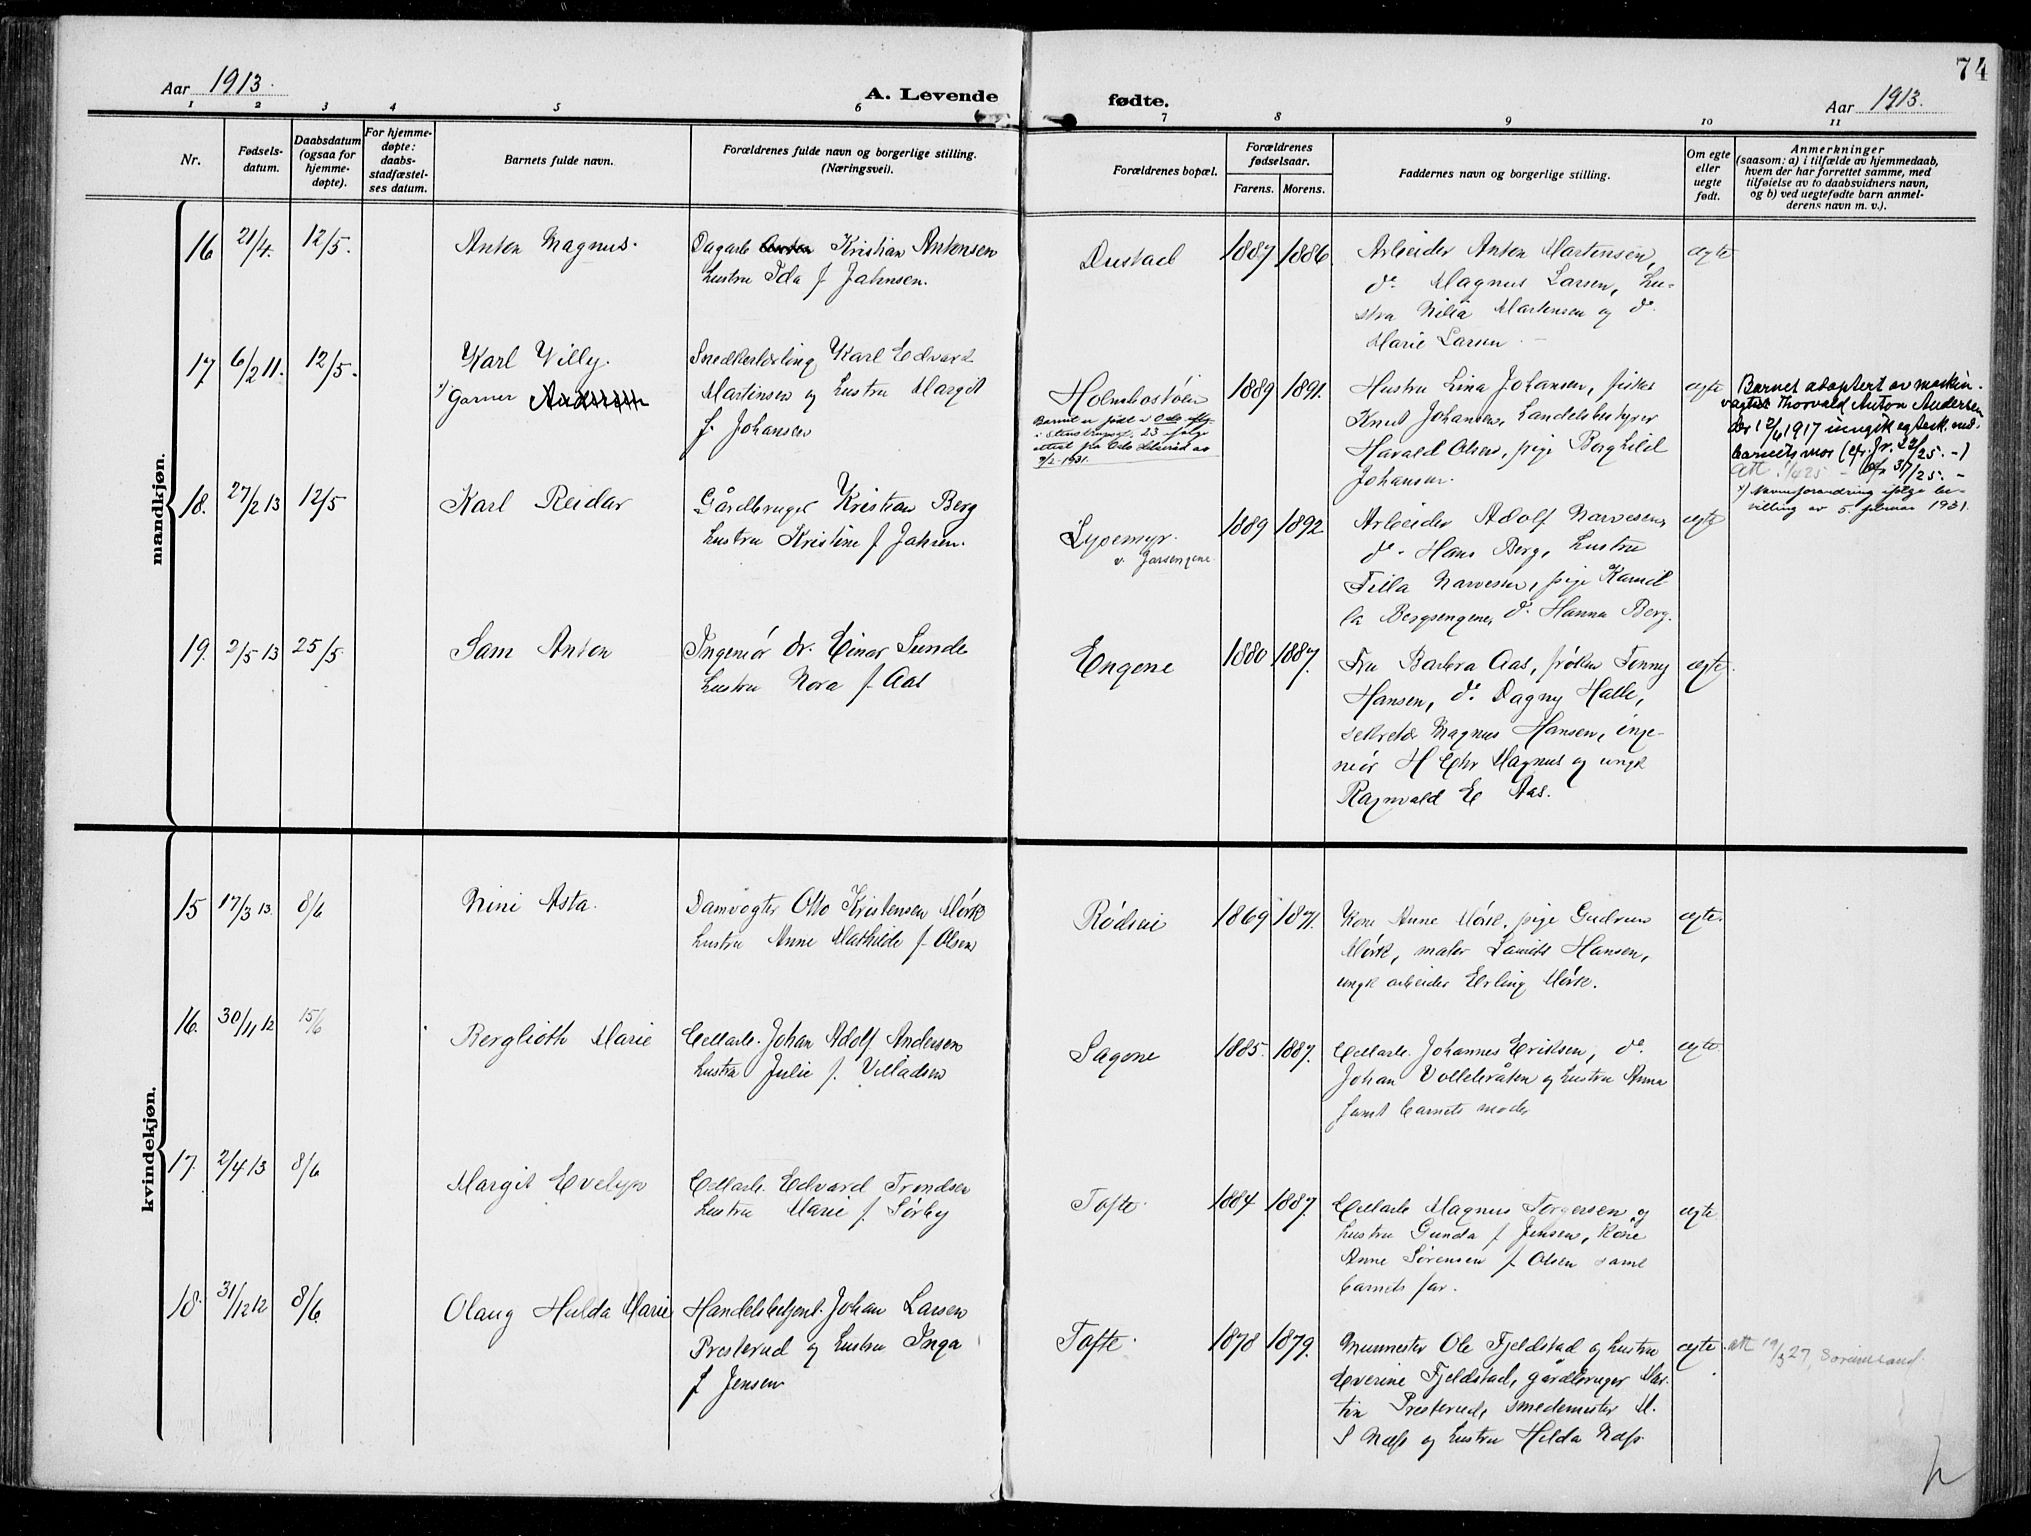 74
Aar 1913.
A. Levende fødte.
Aar 1913.
1 2 3 4 5 6 7 8 9 10 11
Nr.
Fødsels-
datum.
Daabsdatum
(ogsaa for
hjemme-
døpte).
For hjemme-
døpte:
daabs-
stadfæstel-
ses datum.
Barnets fulde navn.
Forældrenes fulde navn og borgerlige stilling.
(Næringsvei).
Forældrenes bopæl.
Forældrenes
fødselsaar.
Farens. Morens.
Faddernes navn og borgerlige stilling.
Om egte
eller
uegte
født.
Anmerkninger
(saasom: a) i tilfælde av hjemmedaab,
hvem der har forrettet samme, med
tilføielse av to daabsvidners navn,
og b) ved uegtefødte barn anmel-
derens navn m. v.).
mandkjøn.
16 21/4. 12/5. Anton Magnus.
Dagarb Kristian Antonsen
hustru Ida f Jahnsen.
Dustad 1887 1886.
Arbeider Anton Martinsen,
do. Magnus Larsen, hu-
stru Nilia Martinsen og do.
Marie Larsen
egte
17 6/2 11. 12/5.
Karl Willy.
x) Garner Andersen
Snedkerlærling Karl Edvard
Martinsen og hustru Margit
f. Johansen
Holmbostøen
Barnet er født i Oslo
i Stenstrupsgt. 23 følge
attest fra Oslo Helseråd av
9/2-1931.
1889 1891.
Hustru Lina Johansen, fisker
Knut Johansen, handelsbestyrer
Harald Olsen, pige Borghild
Johansen.
egte
Barnet adoptert av maskin-
vagter Thorvald Anton Andersen
der 12/6 1917 inngik egtesk. med
barnets mor
x) Navneforandring ifølge be-
villing av 5. februar 1931.
18. 27/2 13 12/5 Karl Reidar
Gårdbruger Kristian Berg
hustru Kristine f. Jahnsen.
Lypemyr.
1889 1892
Arbeider Adolf Narvesen,
do. Hans Berg, hustru
Tilla Narvesen, pige Kamil-
la Bergsengene, do. Hanna Berg.
egte
19. 2/5 13 25/5 Sam Anton
Ingeniør dr. Einar Sunde
hustru Nora f. Aas
Engene 1880 1887.
Fru Barbra Aas, frøken Fanny
Hansen, do. Dagny Halle,
sekretær Magnus Hansen, inge-
niør H Chr Magnus og ungk
Ragnvald E Aas.
egte.
kvindekjøn.
15 17/3 13. 8/6 Nini Asta.
Damvogter Otto Kristensen Mørk
hustru Anne Mathilde f. Olsen
Rødsvei 1869 1871.
Kone Anne Mørk, pige Gudrun
Mørk, maler Laurits Hansen,
ungk arbeider Erling Mørk.
egte.
16. 30/11 12 15/6 Berglioth Marie
Cellarb. Johan Adolf Andersen
hustru Julie f. Villadsen
Sagene 1885. 1887.
Cellarb. Johannes Eriksen, do.
Johan Vollebråten og hustru Anna
samt barnets moder
egte.
17. 2/4 13 8/6 Margit Evelyn
Cellarb. Edvard Trondsen
hustru Marie f. Sørby
Tofte. 1884 1887.
Cellarb Magnus Torgersen og
hustru Gunda f. Jensen, kone
Anne Sørensen f. Olsen samt
barnets far.
egte.
18. 31/12 12 8/6 Olaug Hulda Marie
Handelsbetjent. Johan Larsen
Presterud og hustru Inga
f. Jensen
Tofte. 1878 1879.
Murmester Ole Fjeldstad og hustru
Everine Fjeldstad, gårdbruger Mar-
tin Presterud, smedemester M.
S Næss og hustru Hilda Næss.
egte.
att 19/3 27,